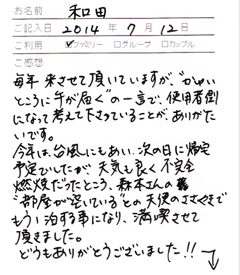 お名前 和田
ご記入日 2014年7月12日
ご利用 ☑ファミリー □グループ □カップル
ご感想
毎年来させて頂いていますが、"かゆい
ところに手が届く"の一言で、使用者側
になって考えて下さっていることが、ありがた
いです。
今年は、台風にもあい、次の日に帰宅
予定でしたが、天気も良く不完全
燃焼だったところ、森本さんの
"部屋が空いている"との天使のささやきで
もう1泊する事になり、満喫させて
頂きました。
どうもありがとうございました!!